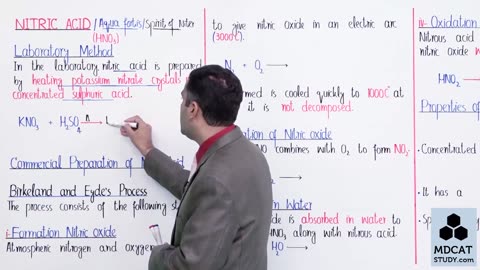 NITRIC ACID / Aqua fortis / Spirit of Niter
(HNO3)
Laboratory Method
In the laboratory nitric acid is prepared
by heating potassium nitrate crystals
concentrated sulphuric acid.
KNO3 + H2SO4 →
Commercial Preparation of
Birkeland and Eyde's Process
The process consists of the following
i- Formation Nitric oxide
Atmospheric nitrogen and oxygen
to give nitric oxide in an electric arc
(3000°C)
N2 + O2
cooled quickly to 1000°C at
it is not decomposed.
of Nitric oxide
NO combines with O2 to form NO2.
in Water
is absorbed in water to
HNO3 along with nitrous acid.
H2O →
iv- Oxidation
Nitrous acid
nitric oxide
HNO2
Properties of
Concentrated
It has a
MDCAT
STUDY.com